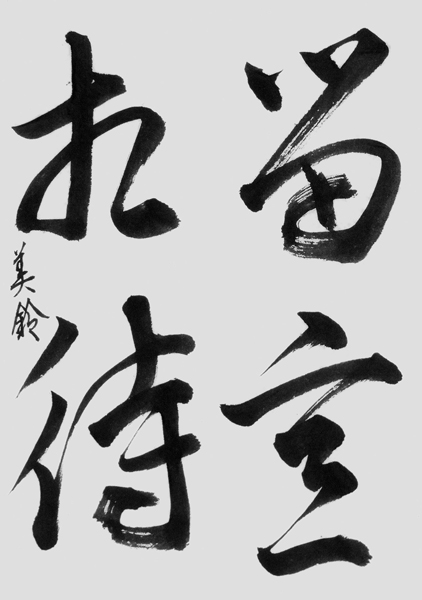 留
相待
美鈴